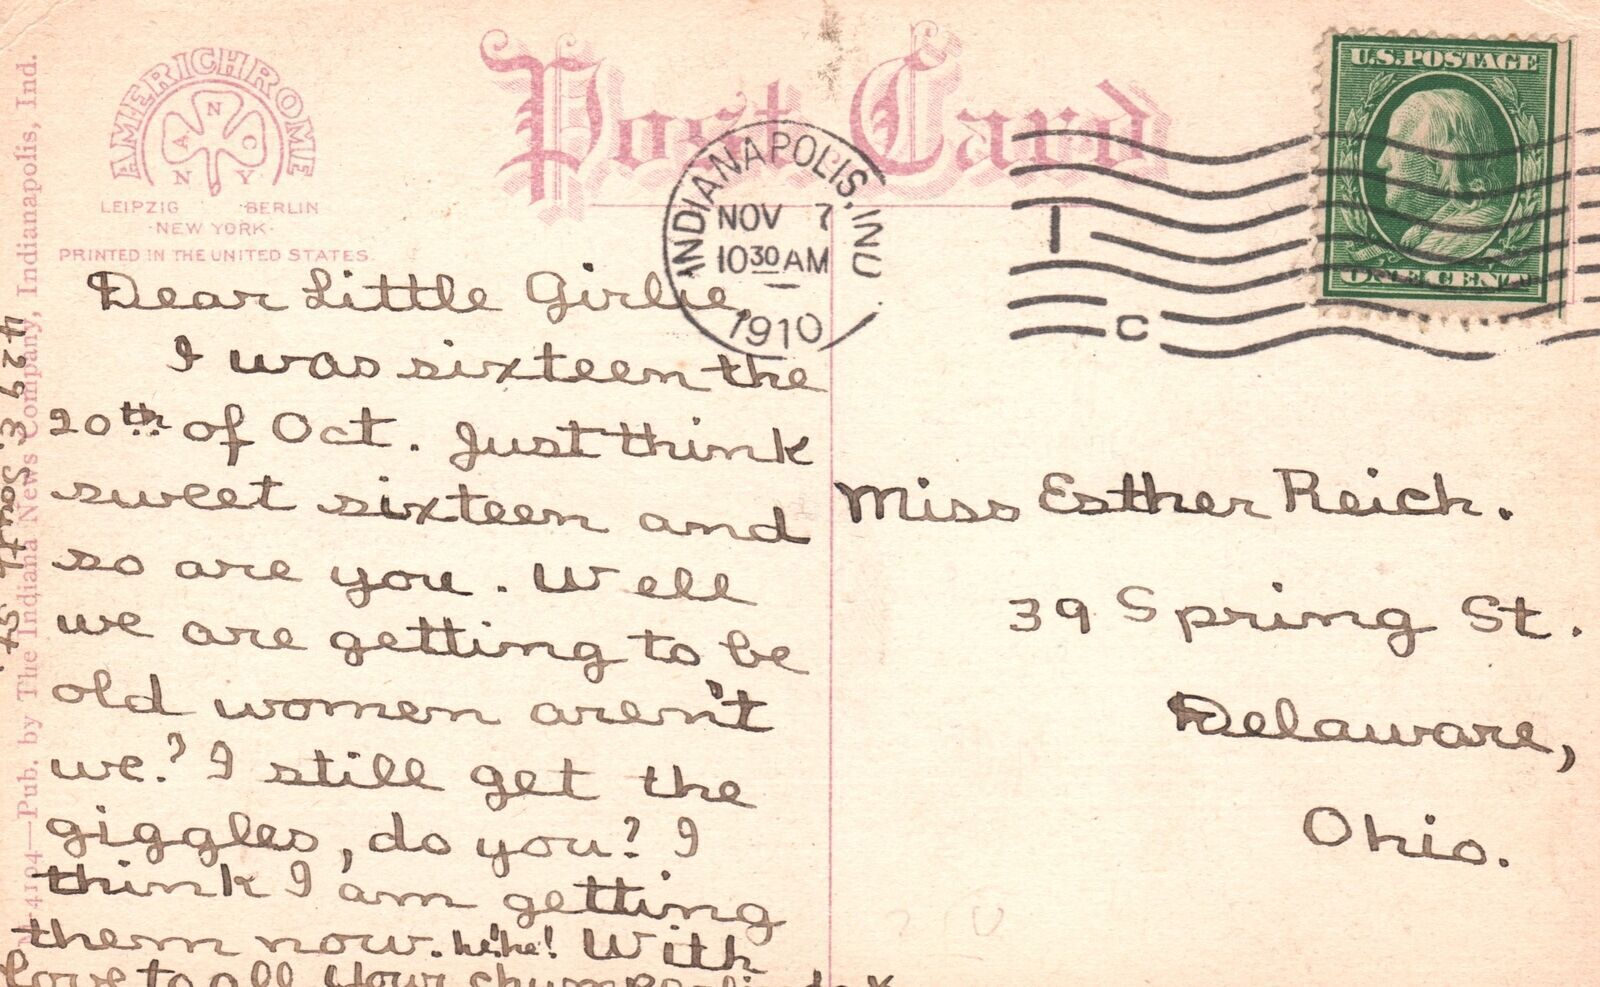 AMERICHROME
NANCY
LEIPZIG BERLIN
NEW YORK
PRINTED IN THE UNITED STATES
Post Card
INDIANAPOLIS, IND
NOV 7
10 30 AM
1910
1
C
U.S. POSTAGE
ONE CENT
Dear Little Girlie,
I was sixteen the
20th of Oct. Just think
sweet sixteen and
so are you. Well
we are getting to be
old women aren't
we? I still get the
giggles, do you? I
think I am getting
them now. he!he! With
love to all your
Miss Esther Reich.
39 Spring St.
Delaware,
Ohio.
4104—Pub. by The Indiana News Company, Indianapolis, Ind.
429 E. South St.